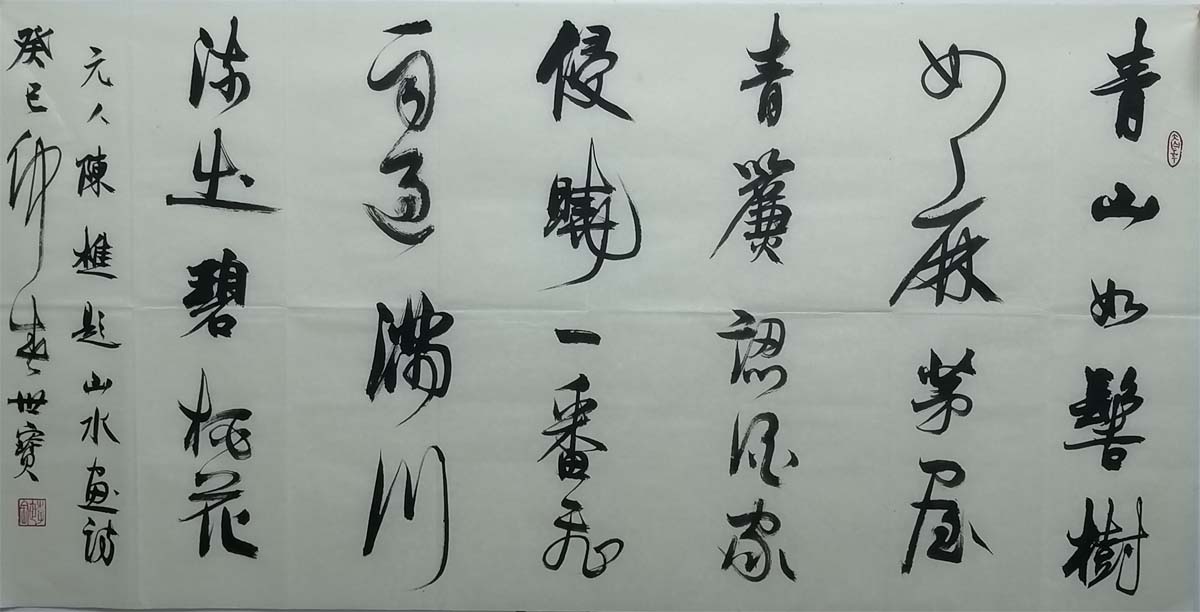 青山如髻樹
如麻茅屋
青簾認酒家
侵曉一番飛
雨過滿川
流出碧桃花
元人陳樵題山水畫詩
癸巳仲春世寶